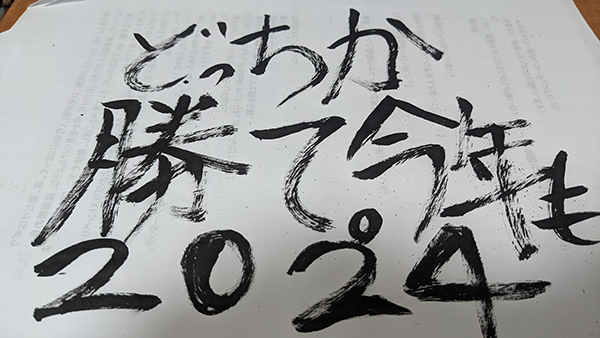 どっちか
勝て。今年も
2024